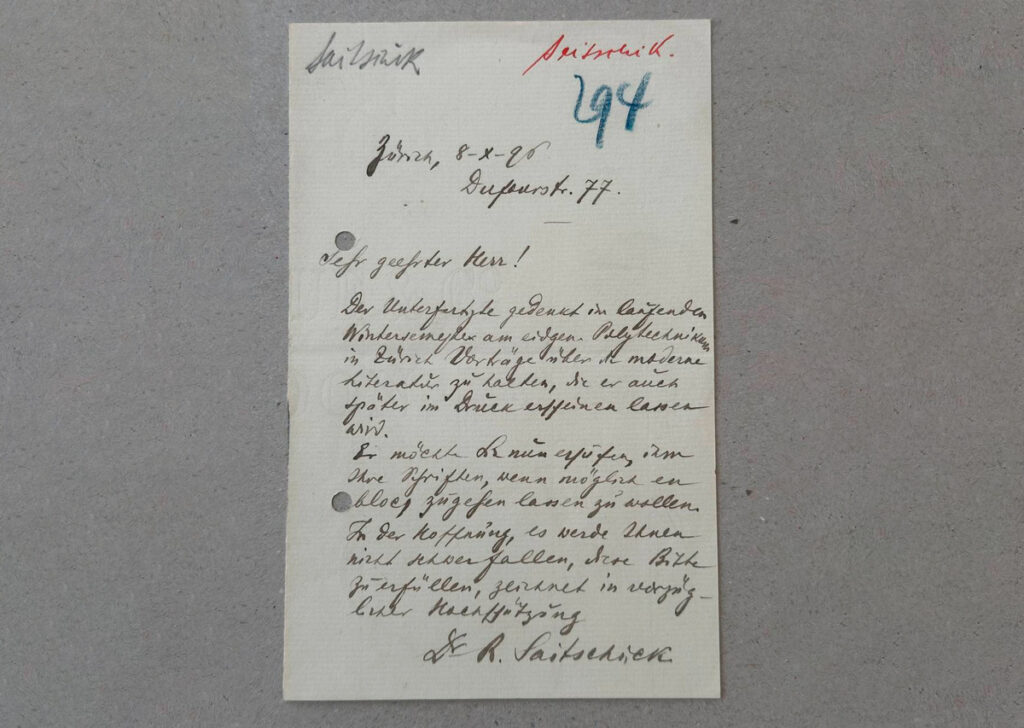 Saitschik
Saitschik.
294
Zürich, 8-X-96
Dufourstr. 77.
Sehr geehrter Herr!
Der Unterfertigte gedenkt im laufenden
Wintersemester am eidgen. Polytechnikum
in Zürich Vorträge über die moderne
Literatur zu halten, die er auch
später im Druck erscheinen lassen
wird.
Er möchte Sie nun ersuchen, ihm
Ihre Schriften, wenn möglich en
bloc, zugehen lassen zu wollen.
In der Hoffnung, es werde Ihnen
nicht schwer fallen, diese Bitte
zu erfüllen, zeichnet in vorzüg-
licher Hochschätzung
Dr R. Saitschick